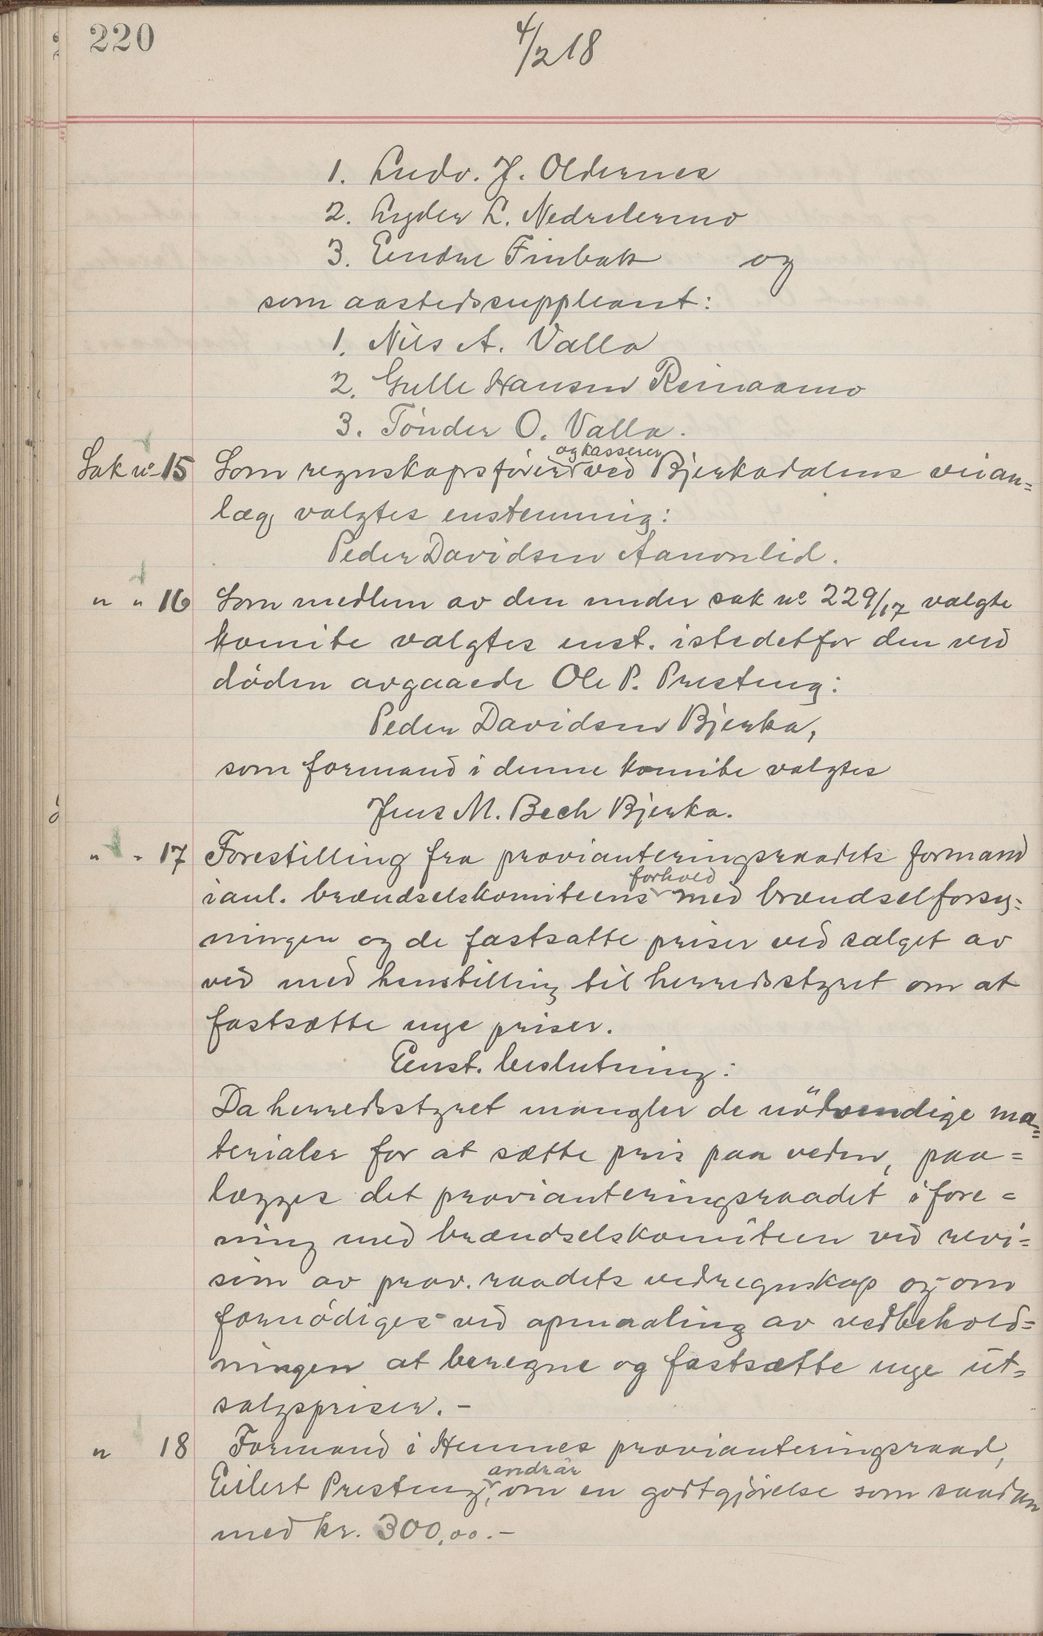 220
4/2 18
1. Ludv. J. Oldernes
2. Lyder L. Nedrelermo
3. Eendre Finbak og
som aastedssuppleant:
1. Nils A. Valla
2. Gulle Hansen Reinaamo
3. Tönder O. Valla.
og kasserer
Sak no 15 Som regnskapsfører ved Bjerkadalens veian=
læg valgtes enstemmig:
Peder Davidsen Aanonlid.
" " 16 Som medlem av den under sak no 229/17 valgte
komite valgtes enst. istedetfor den ved
døden avgaaede Ole P. Presteng:
Peder Davidsen Bjerka,
som formand i denne komite valgtes
Jens M. Bech Bjerka.
" " 17 Forestilling fra provianteringsraadets formand
forhold
i anl. brændselskomiteens med brændselforsy=
ningen og de fastsatte priser ved salget av
ved med henstilling til herredsstyret om at
fastsætte nye priser.
Enst. beslutning:
Da herredsstyret mangler de nödvendige ma=
terialer for at sætte pris paa veden, paa=
lægges det provianteringsraadet i fore=
ning med brændselskomiteen ved revi=
sion av prov. raadets vedregnskap og om
fornødiges ved opmaaling av vedbehold=
ningen at beregne og fastsætte nye ut=
salgspriser. -
" 18 Formand i Hemnes provianteringsraad,
andrar
Eilert Presteng, om en godtgjörelse som saadan
med kr. 300,00. -